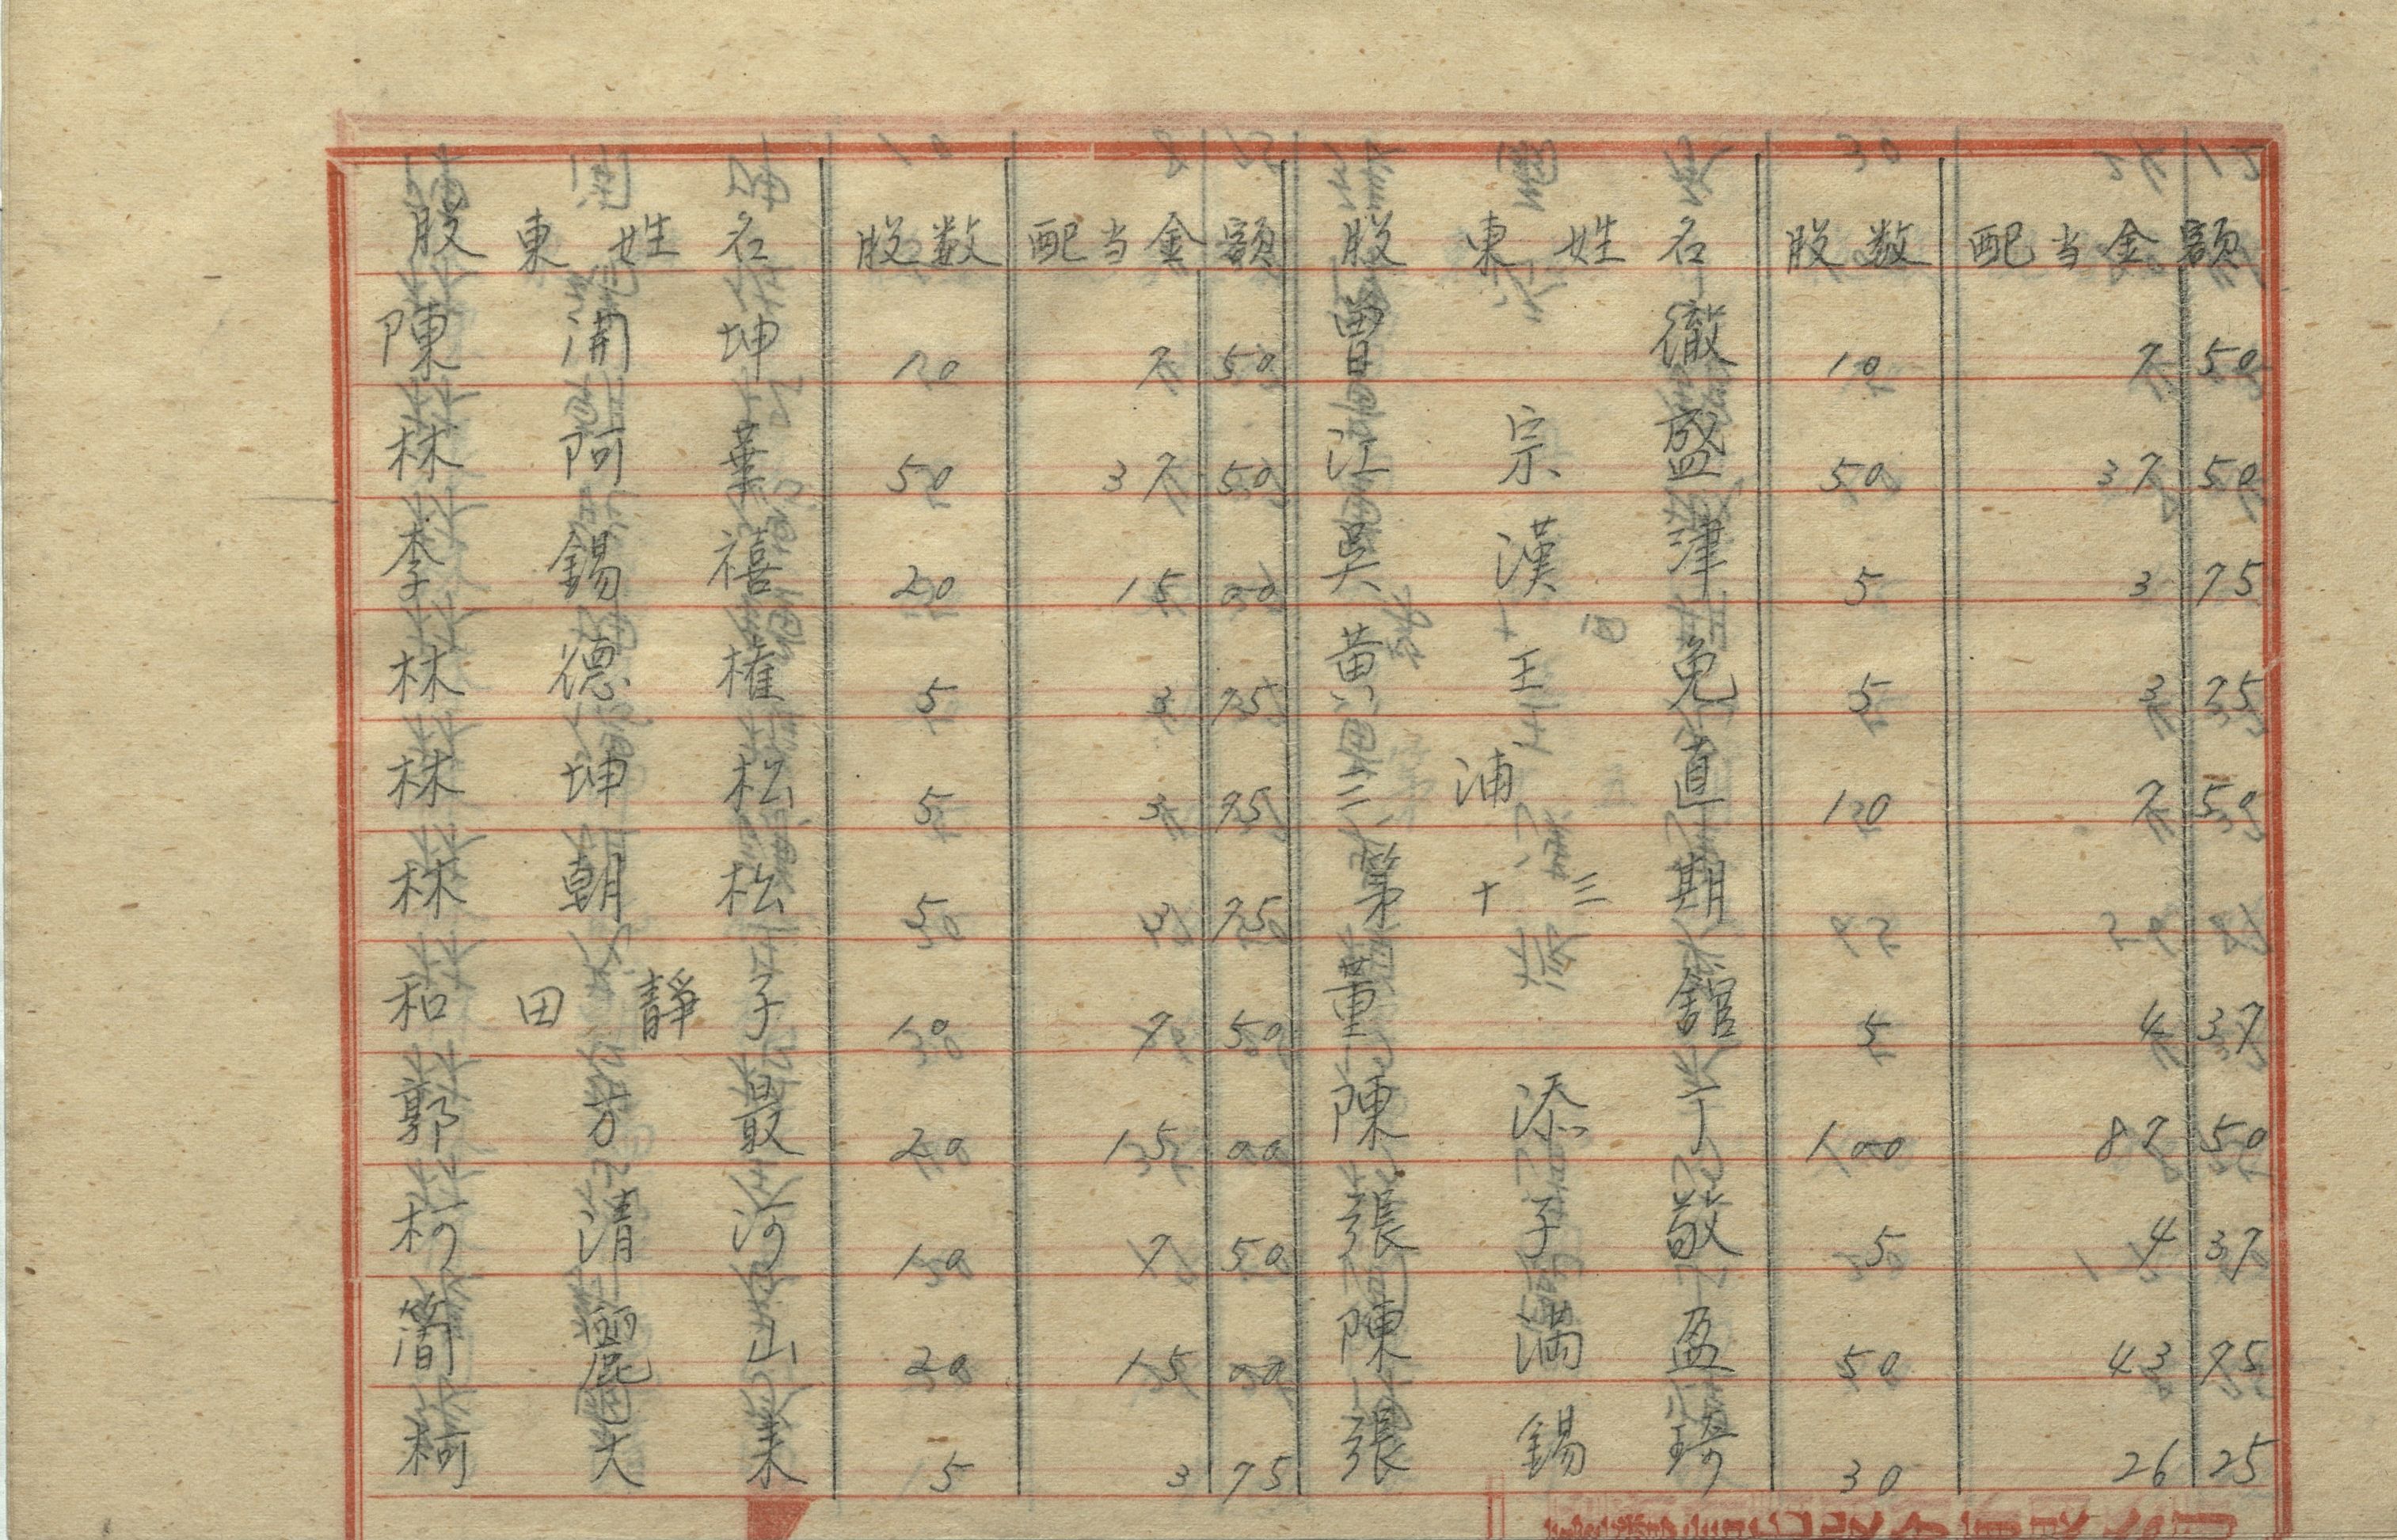 股東姓名 股数 配当金額 股東姓名 股数 配当金額
陳開坤 10 7 50 曽徹 10 7 50
林阿葉 50 37 50 江宗盛 50 37 50
李錫禧 20 15 00 吳漢津 5 3 75
林德權 5 3 75 黄王兔 5 3 75
林坤松 5 3 75 三浦直 10 7 50
林朝松 5 3 75 第十三期
和田靜子 10 7 50 董舘 5 4 37
郭芳最 20 15 00 陳添丁 100 87 50
柯清河 10 7 50 張子敬 5 4 37
簡麗山 20 15 00 陳満盈 50 43 75
柯大耒 5 3 75 張錫琦 30 26 25